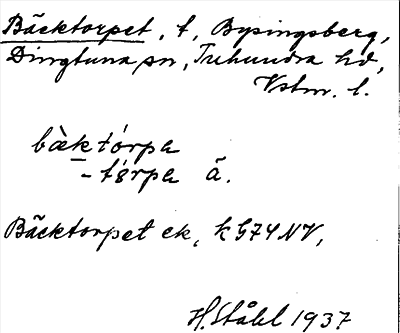 Bäcktorpet, t, Bysingsberg,
Dingtuna sn, Tuhundra hd,
Vstm. l.
bàktórpa
- tórpa ä.
Bäcktorpet ek, k G74NV,
H. Ståhl 1937